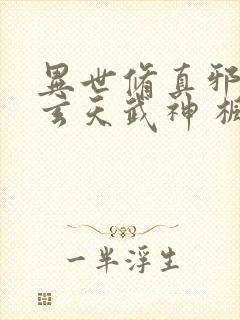 異世脩真邪
玄天武神
一半浮生